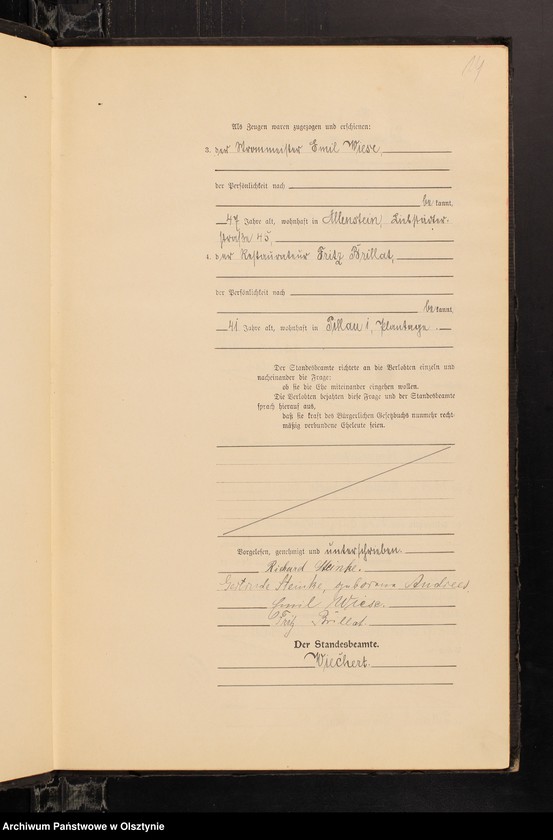 14
Als Zeugen waren zugezogen und erschienen:
3. der Strommeister Emil Wiese,
der Persönlichkeit nach
be kannt,
47 Jahre alt, wohnhaft in Allenstein, Liebstädter-
straße 45,
4. der Restaurateur Fritz Brillat,
der Persönlichkeit nach
be kannt,
41 Jahre alt, wohnhaft in Pillau I, Plantage.
Der Standesbeamte richtete an die Verlobten einzeln und
nacheinander die Frage:
ob sie die Ehe miteinander eingehen wollen.
Die Verlobten bejahten diese Frage und der Standesbeamte
sprach hierauf aus,
daß sie kraft des Bürgerlichen Gesetzbuchs nunmehr recht-
mäßig verbundene Eheleute seien.
Vorgelesen, genehmigt und unterschrieben.
Richard Steinke.
Gertrude Steinke, geborene Andrees
Emil Wiese.
Fritz Brillat.
Der Standesbeamte.
Wiechert.
Archiwum Państwowe w Olsztynie